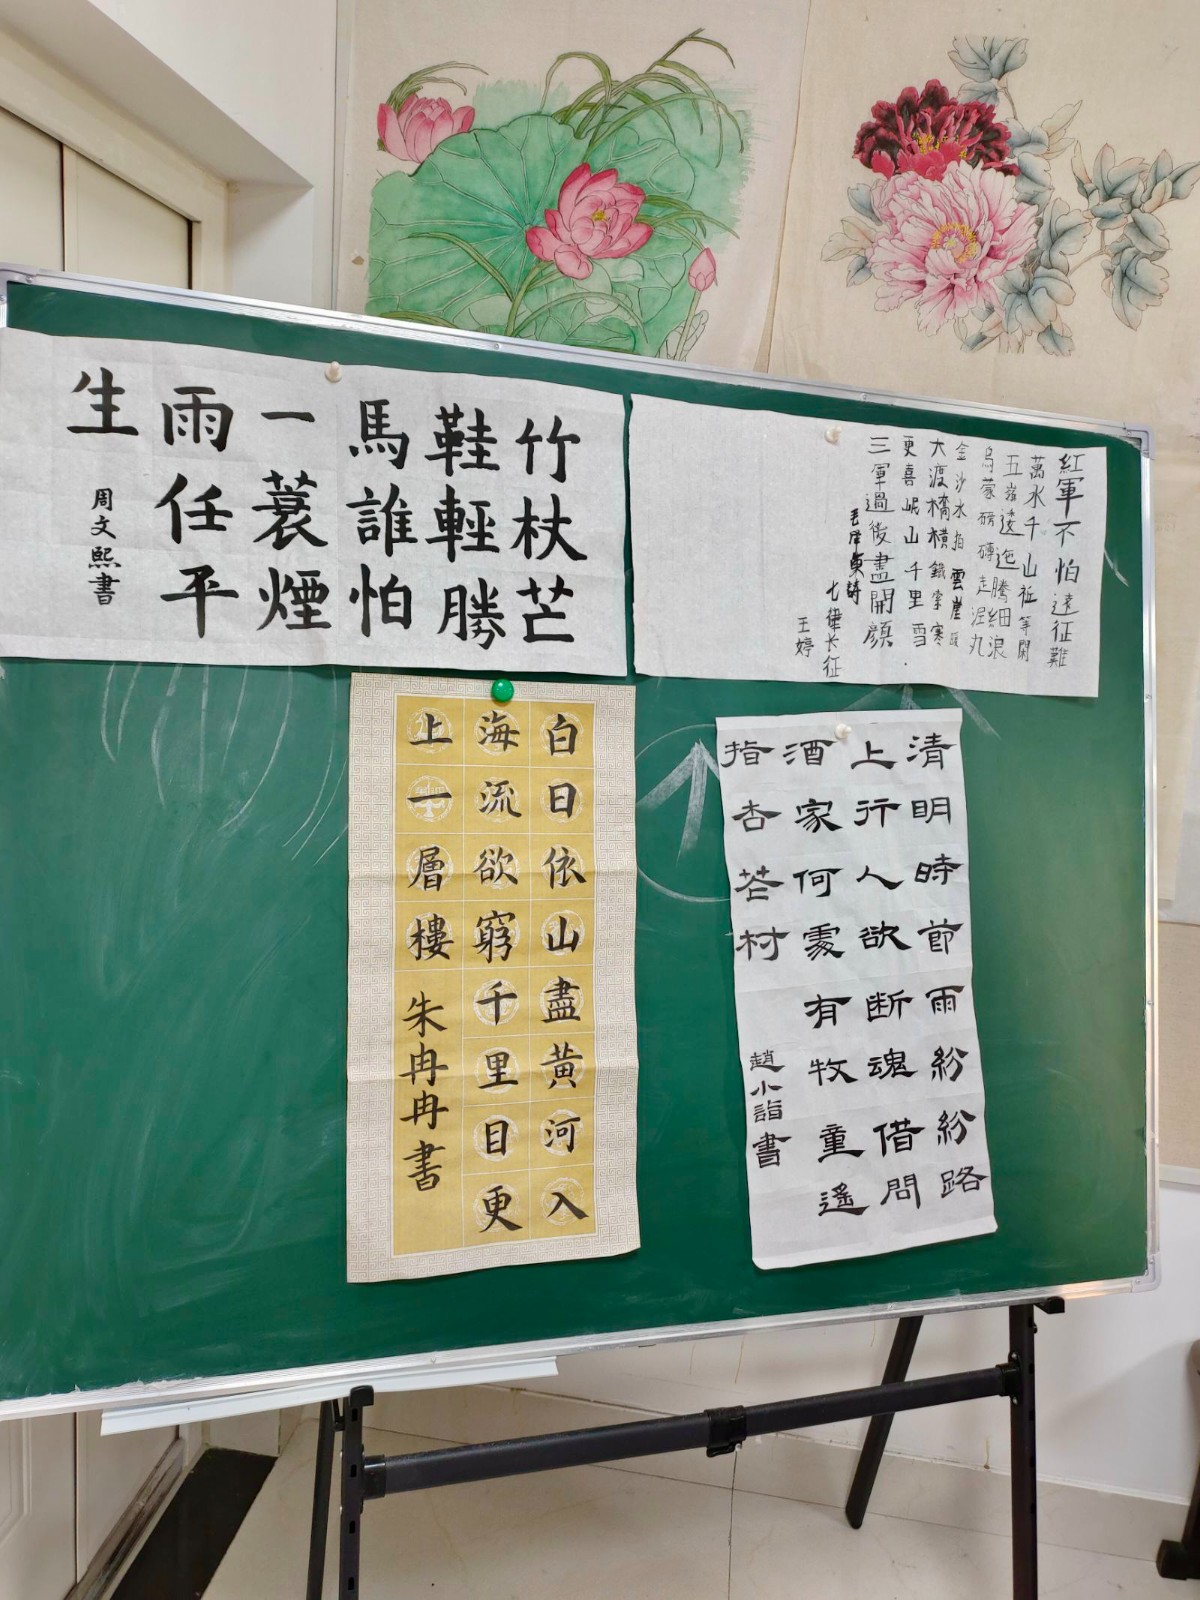 竹杖芒
鞋輕勝
馬誰怕
一蓑煙
雨任平
生
周文熙書
紅軍不怕遠征難
萬水千山祗等閑
五嶺逶迤騰細浪
烏蒙磅礴走泥丸
金沙水拍雲崖暖
大渡橋橫鐵索寒
更喜岷山千里雪
三軍過後盡開顏
毛澤東詩
七律长征
王婷
白日依山盡黃河入
海流欲窮千里目更
上一層樓
朱冉冉書
清明時節雨紛紛路
上行人欲断魂借問
酒家何處有牧童遥
指杏芲村
趙小詣書